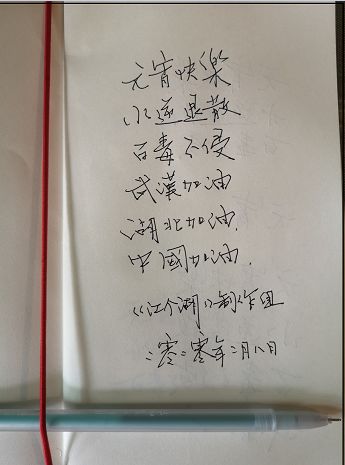 元宵快樂
水逆退散
百毒不侵
武漢加油
湖北加油
中國加油.
《江个湖》制作组
二零二零年二月八日